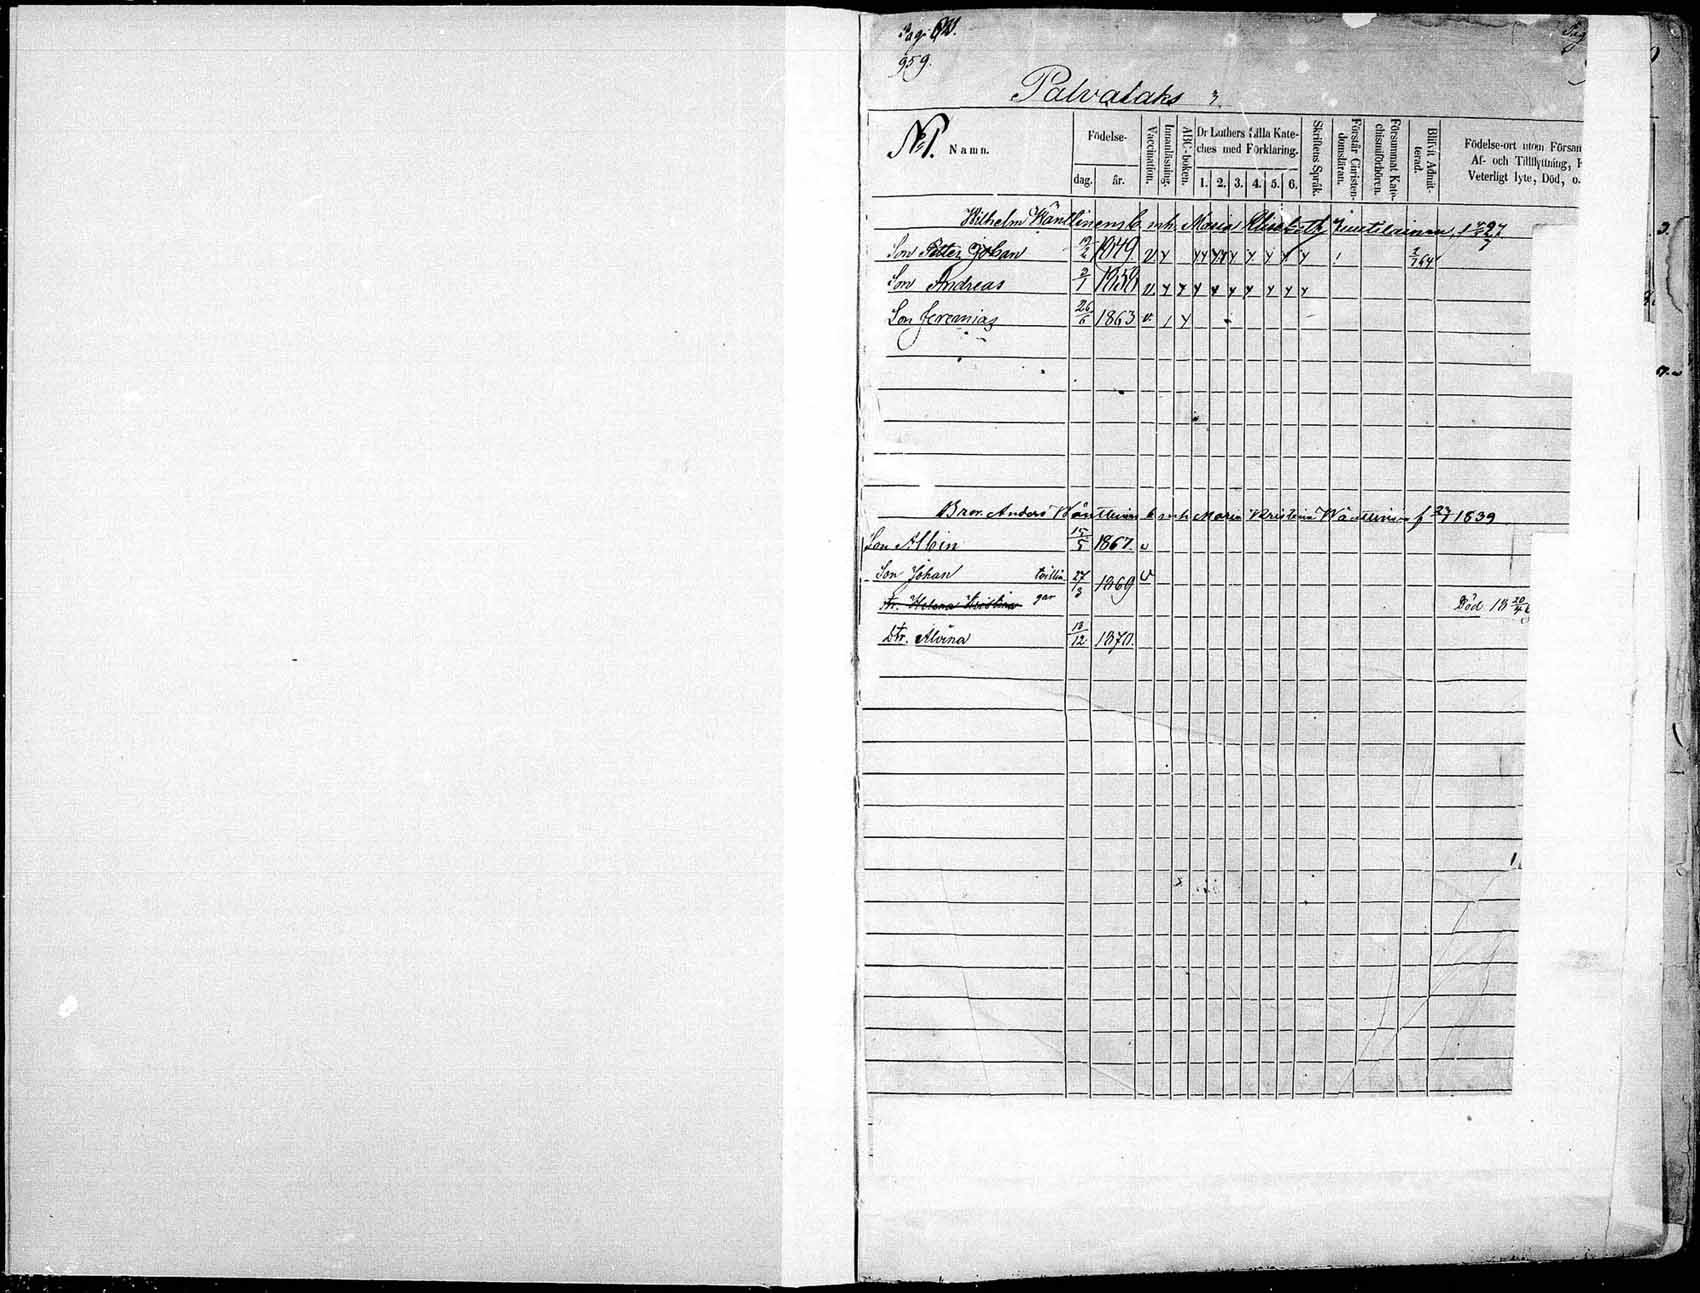 Pag.
959.
Palvataks 3.
No 1. Namn.
Födelse-
dag. år.
Vaccination.
Innanläsning.
ABC-boken.
Dr Luthers Lilla Kate-
ches med Förklaring.
1. 2. 3. 4. 5. 6.
Skriftens Språk.
Förstår Christen-
domsläran.
Försummat Kate-
chismiförhören.
Blifvit Admit-
terad.
Födelse-ort utom Försam
Af- och Tillflyttning,
Veterligt lyte, Död, o.
Wilhelm Wäntinens b. m. h. Maria Elisabeth
Son Petter Johan 19/2 1849 v
Son Andreas 2/1 1858 v
Son Jeremias 26/6 1863 v
Bror. Anders Wäntinens b. m. h. Maria Kristina Wäntinen f 1839
Son Albin 15/5 1867. v
Son Johan tvillin 27/3 1869 v
Dr. Helena Kristina gar Död 18 20/4
Dtr. Alvina 13/12 1870.